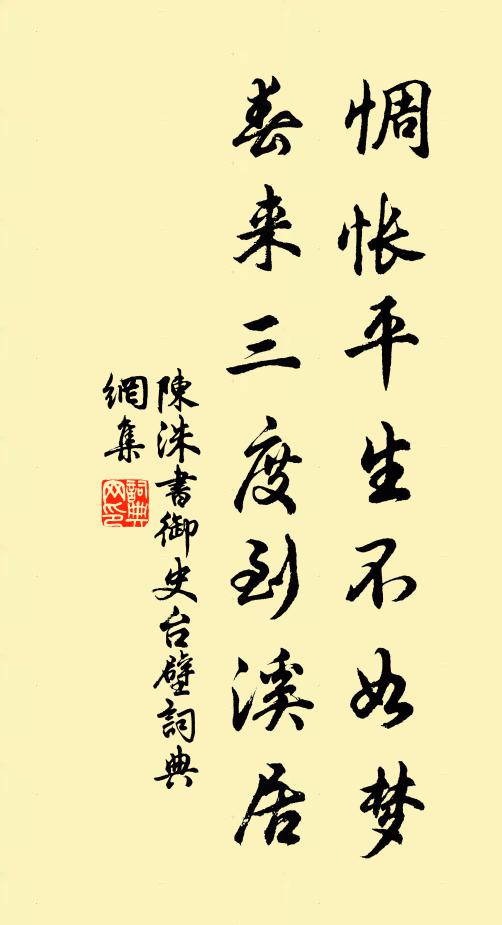 惆怅平生不如梦
春来三度到溪居
陳洙書御史台壁詞典
網集
詞典网印